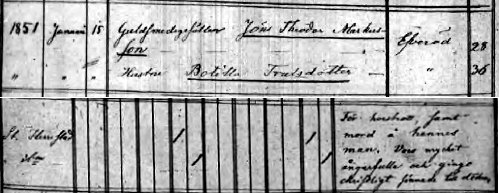 1851 Januari 15 Guldsmedsgesällen Jöns Theodor Markus-
son Efveröd 28
" " " Hustru Botilla Truedsdotter — " 36
St. Herrestad För horsbrott, samt
mord å hennes
man. Voro mycket
ångerfulla och gingo
christligt